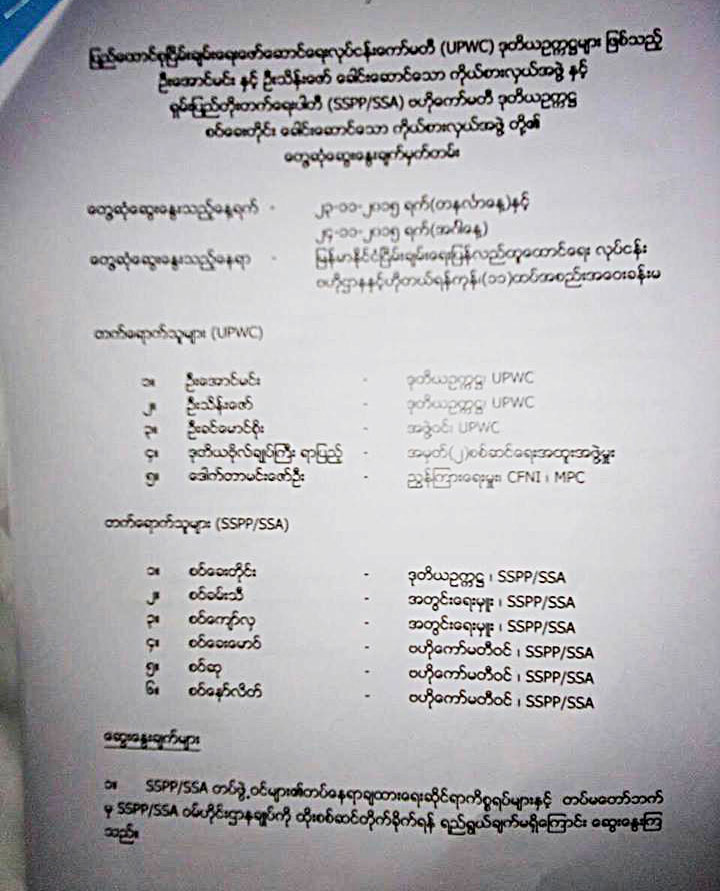 ပြည်ထောင်စုငြိမ်းချမ်းရေးဖော်ဆောင်ရေးလုပ်ငန်းကော်မတီ (UPWC) ဒုတိယဥက္ကဋ္ဌများ ဖြစ်သည့်
ဦးအောင်မင်း နှင့် ဦးသိန်းဇော် ခေါင်းဆောင်သော ကိုယ်စားလှယ်အဖွဲ့ နှင့်
ရှမ်းပြည်တိုးတက်ရေးပါတီ (SSPP/SSA) ဗဟိုကော်မတီ ဒုတိယဥက္ကဋ္ဌ
စဝ်ခေးတိုင်း ခေါင်းဆောင်သော ကိုယ်စားလှယ်အဖွဲ့ တို့၏
တွေ့ဆုံဆွေးနွေးချက်မှတ်တမ်း
တွေ့ဆုံဆွေးနွေးသည့်နေ့ရက် - ၂၃-၁၁-၂၀၁၅ ရက်(တနင်္လာနေ့)နှင့်
၂၄-၁၁-၂၀၁၅ ရက်(အင်္ဂါနေ့)
တွေ့ဆုံဆွေးနွေးသည့်နေရာ - မြန်မာနိုင်ငံငြိမ်းချမ်းရေးပြန်လည်ထူထောင်ရေး လုပ်ငန်း
ဗဟိုဌာနနှင့်ဟိုတယ်ရန်ကုန်၊(၁၁)ထပ်အစည်းအဝေးခန်းမ
တက်ရောက်သူများ (UPWC)
၁။ ဦးအောင်မင်း - ဒုတိယဥက္ကဋ္ဌ၊ UPWC
၂။ ဦးသိန်းဇော် - ဒုတိယဥက္ကဋ္ဌ၊ UPWC
၃။ ဦးခင်မောင်စိုး - အဖွဲ့ဝင်၊ UPWC
၄။ ဒုတိယဗိုလ်ချုပ်ကြီး ရာပြည့် - အမှတ်(၂)စစ်ဆင်ရေးအထူးအဖွဲ့မှူး
၅။ ဒေါက်တာမင်းဇော်ဦး - ညွှန်ကြားရေးမှူး၊ CFNI ၊ MPC
တက်ရောက်သူများ (SSPP/SSA)
၁။ စဝ်ခေးတိုင်း - ဒုတိယဥက္ကဋ္ဌ ၊ SSPP/SSA
၂။ စဝ်ခမ်းသီ - အတွင်းရေးမှူး ၊ SSPP/SSA
၃။ စဝ်ကျော်လှ - အတွင်းရေးမှူး ၊ SSPP/SSA
၄။ စဝ်ခေးမောဝ် - ဗဟိုကော်မတီဝင် ၊ SSPP/SSA
၅။ စဝ်ဆု - ဗဟိုကော်မတီဝင် ၊ SSPP/SSA
၆။ စဝ်နော်လိတ် - ဗဟိုကော်မတီဝင် ၊ SSPP/SSA
ဆွေးနွေးချက်များ
၁။ SSPP/SSA တပ်ဖွဲ့ဝင်များ၏တပ်နေရာချထားရေးဆိုင်ရာကိစ္စရပ်များနှင့် တပ်မတော်ဘက်
မှ SSPP/SSA ဝမ်ဟိုင်းဌာနချုပ်ကို ထိုးစစ်ဆင်တိုက်ခိုက်ရန် ရည်ရွယ်ချက်မရှိကြောင်း ဆွေးနွေးကြ
သည်။